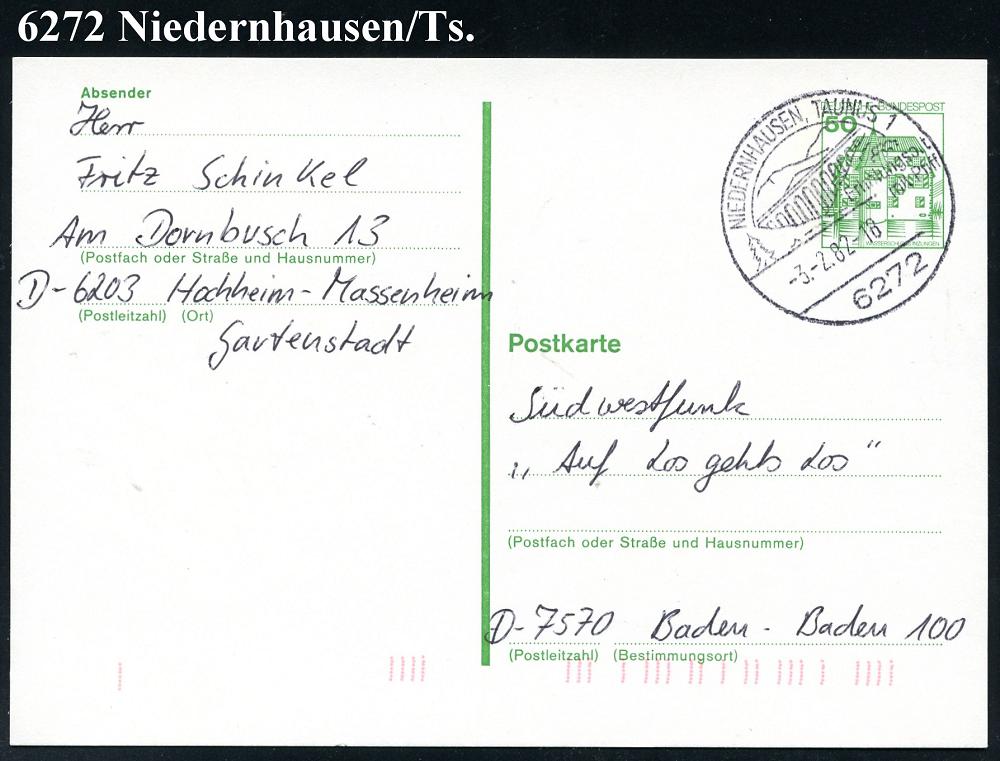 6272 Niedernhausen/Ts.
Absender
Herr
Fritz Schinkel
Am Dornbusch 13
(Postfach oder Straße und Hausnummer)
D-6203 Hochheim-Massenheim
(Postleitzahl) (Ort)
Gartenstadt
BUNDESPOST
50
WASSERSCHLOSS INZLINGEN
NIEDERNHAUSEN, TAUNUS 1
-3.-2.82-18
6272
Postkarte
Südwestfunk
„Auf Los gehts Los"
(Postfach oder Straße und Hausnummer)
D-7570 Baden-Baden 100
(Postleitzahl) (Bestimmungsort)